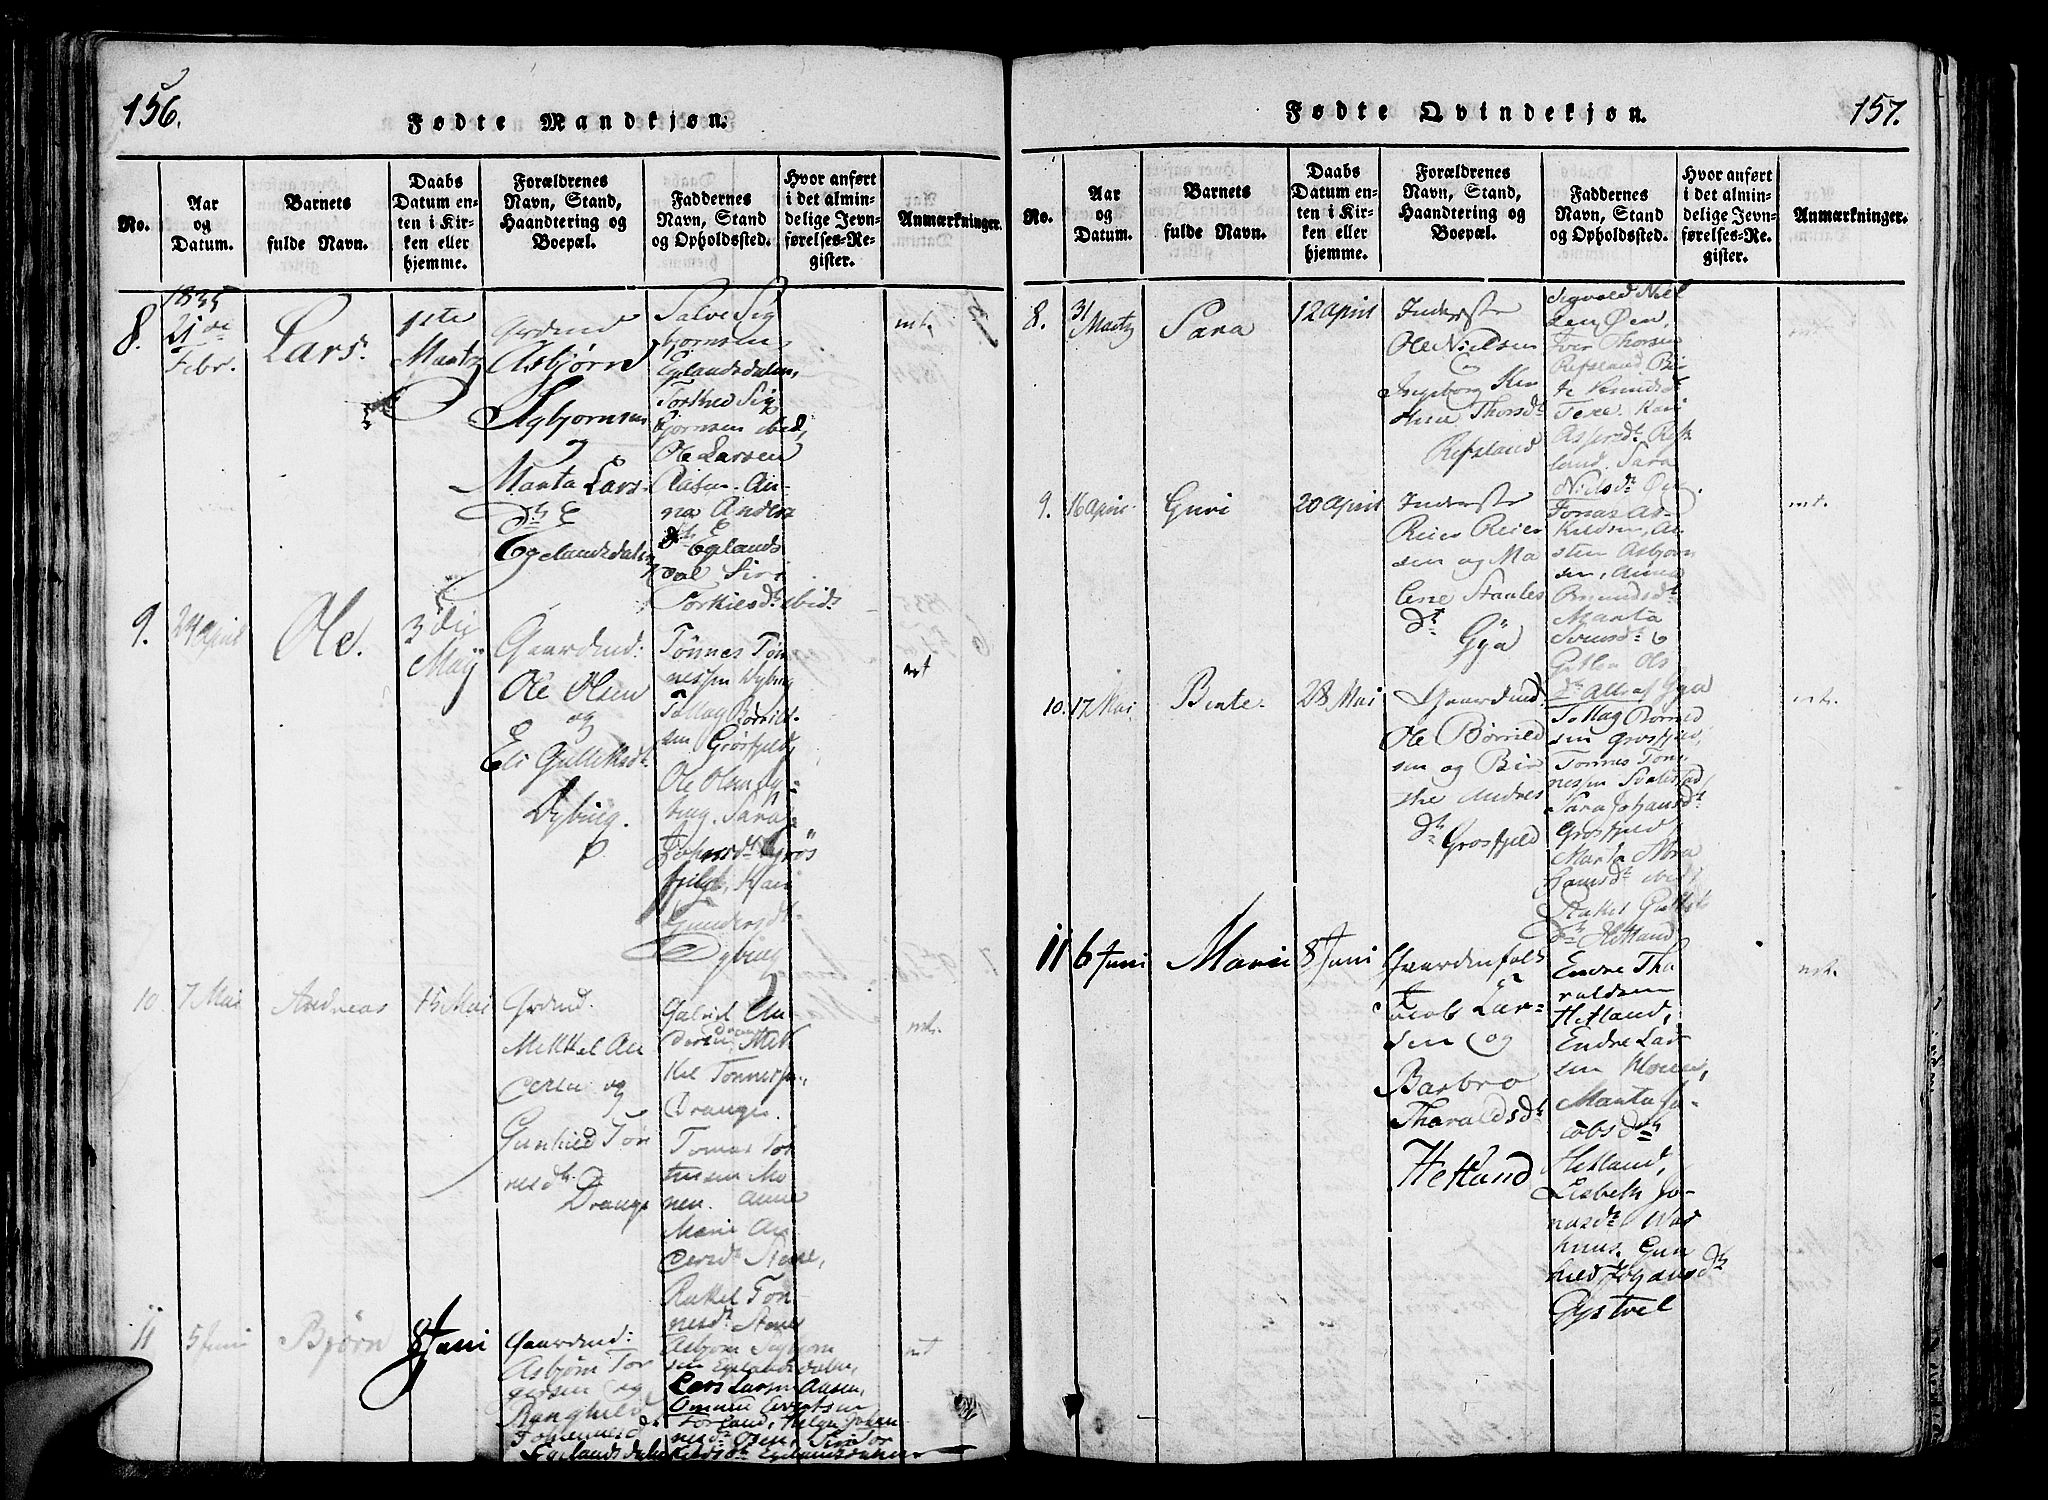 156.
Fødte Mandkjøn.
No.
Aar
og
Datum.
Barnets
fulde Navn.
Daabs
Datum en-
ten i Kir-
ken eller
hjemme.
Forældrenes
Navn, Stand,
Haandtering og
Boepæl.
Faddernes
Navn, Stand
og Opholdssted.
Hvor anført
i det almin-
delige Jevn-
førelses-Re-
gister.
Anmærkninger.
8.
1835
21de
Febr.
Lars.
1ste
Martz
Grdmd
Asbjørn
Sigbjørnsen
og
Marta Lars-
dtr
Egelandsdalen
Salve Sig
bjørnsen
Egelandsdalen,
Torkild Sig
bjørnsen ibid,
Ole Larsen
An-
na Anders
dtr Eglands
dal Siri
Torkilsdtr ibid
nt.
9.
24 April
Ole.
3die
Maij
Gaardmd:
Ole Olsen
og
Eli Gulliksdtr
Dybing.
Tønnes Tøn
nessen Dybing
Tollag Børrild-
sen Grøsfjeld,
Ole Olsen Dy-
bing. Sara
Johnsdtr Grøs
fjeld, Kari
Gundersdtr
Dybing
nt
10.
7 Mai
Andreas
15 Mai
Grdmd.
Mikkel An
dersen og
Gunhild Tøn
nesdtr
Drange
Gabriel An
dersen Drange Mik
kel Tønnesen,
Drange.
Tomas Tor
kelsen Mo
nen. Anne
Marie An
dersdtr
Rakel Tøn-
nesdtr
nt.
11
5 Juni
Bjørn
8 Juni
Gaardmd:
Asbjørn Tor
gersen og
Ranghild
Johannesd
Egelandsdalen
Asbjørn Sigbjørn
sen Egelandsdalen,
Lars Larsen Aasen,
Omund
Helge Johan-
nesdtr Osen, Siri Tor
kildsdtr Egelandsdalen
nt
157.
Fødte Qvindekjøn.
No.
Aar
og
Datum.
Barnets
fulde Navn.
Daabs
Datum en-
ten i Kir-
ken eller
hjemme.
Forældrenes
Navn, Stand,
Haandtering og
Boepæl.
Faddernes
Navn, Stand
og Opholdssted.
Hvor anført
i det almin-
delige Jevn-
førelses-Re-
gister.
Anmærkninger.
8.
31
Martz
Sara
12 April
Inderste
Ole Nielsen
og
Ingeborg
Thorsdtr
Refsland
Sigvald Niel
sen Øen,
Iver Thorsen
Refsland Bir
te Knudsdtr
Kari
Aspersdtr Refs
land. Sara
Nielsdtr Øen.
nt.
9.
16 April
Guri
20 April
Inderste
Reier Reier
sen og Ma
lene Staales
dtr
Gya
Jonas As-
kildsen, Ai-
sten Asbjørn
sen, Anna
Omundsdtr
Marta
Svensdtr
Ols
dtr Alle af Gya
nt.
10.
17 Mai
Bente.
28 Mai
Gaardmd:
Ole Børrild
sen og Bir
the Andres
dtr Grøsfjeld
Tollag Børrild
sen Grøsfjeld,
Tønnes Tøn-
nessen
Sara Johansdtr
Grøsfjeld
Marta Abra
hamsdtr ibid,
Rakel Gulliks
dtr Hetland
nt.
11
6 Juni
Maria
8 Juni
Gaardmfolk
Jacob Lar-
sen og
Barbro
Tharaldsdtr
Hetland
Endre Tha
raldsen
Hetland,
Endre Lar
sen Monen,
Marta Ja-
cobsdtr
Hetland,
Lisbeth Jo-
nasdtr Wat
hnus, Gun
hild Johansdtr
Gystvel
nt.